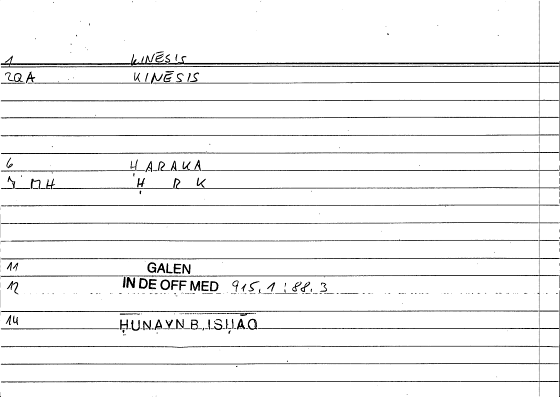 1 KINĒSIS
2QA KINĒSIS
6 ḤARAKA
7 MH Ḥ R K
11 GALEN
12 IN DE OFF MED 915,1:88,3
14 ḤUNAYN B. ISḤĀQ